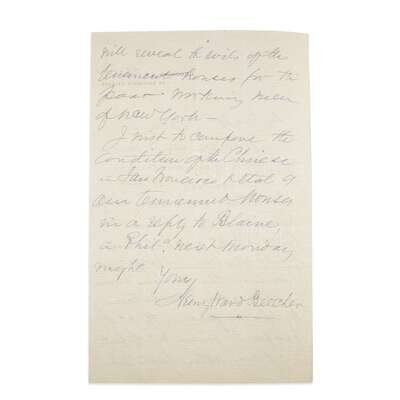 will reveal the evils of the
tenement houses for the
poor working men
of New York —
I wish to compare the
condition of the Chinese
in San Francisco & that of
our tenement houses
in a reply to Blaine,
in Phila. next Monday
night
Yours
Henry Ward Beecher